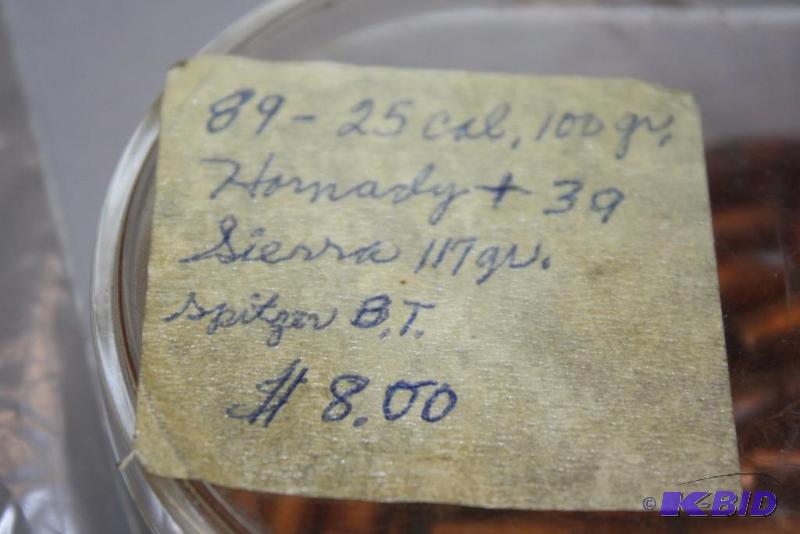 89 - 25 cal, 100 gr,
Hornady + 39
Sierra 117 gr.
spitzer B.T.
$ 8.00
© K-BID